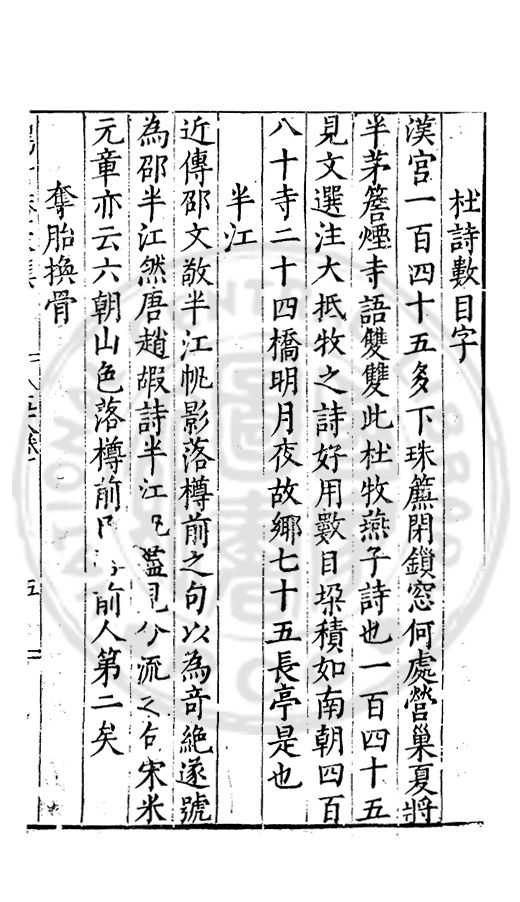 杜詩數目字
漢宮一百四十五多下珠簾閉鎖窓何處營巢夏將
半茅簷煙寺語雙雙此杜牧燕子詩也一百四十五
見文選注大抵牧之詩好用數目垜積如南朝四百
八十寺二十四橋明月夜故鄉七十五長亭是也
半江
近傳邵文敬半江帆影落樽前之句以為奇絶遂號
為邵半江然唐趙嘏詩半江見分流之句宋米
元章亦云六朝山色落樽前前人第二矣
奪胎換骨
五